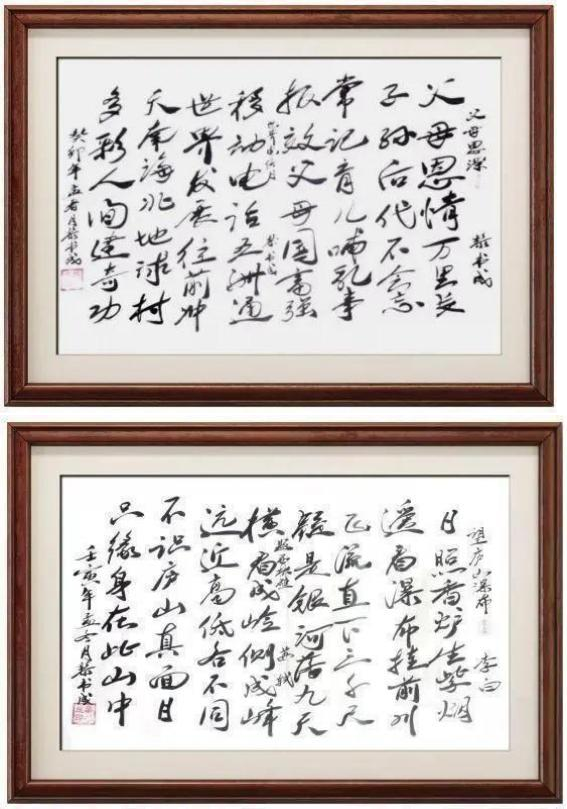 父母恩深
父母恩情万里长
子孙后代不会忘
常记育儿哺乳事
报效父母国富强
移动电话五洲通
世界发展往前冲
天南海北地球村
多彩人间建奇功
癸卯年孟春月 书成
望庐山瀑布 李白
日照香炉生紫烟
遥看瀑布挂前川
飞流直下三千尺
疑是银河落九天
题西林壁 苏轼
横看成岭侧成峰
远近高低各不同
不识庐山真面目
只缘身在此山中
壬寅年孟冬月 书成